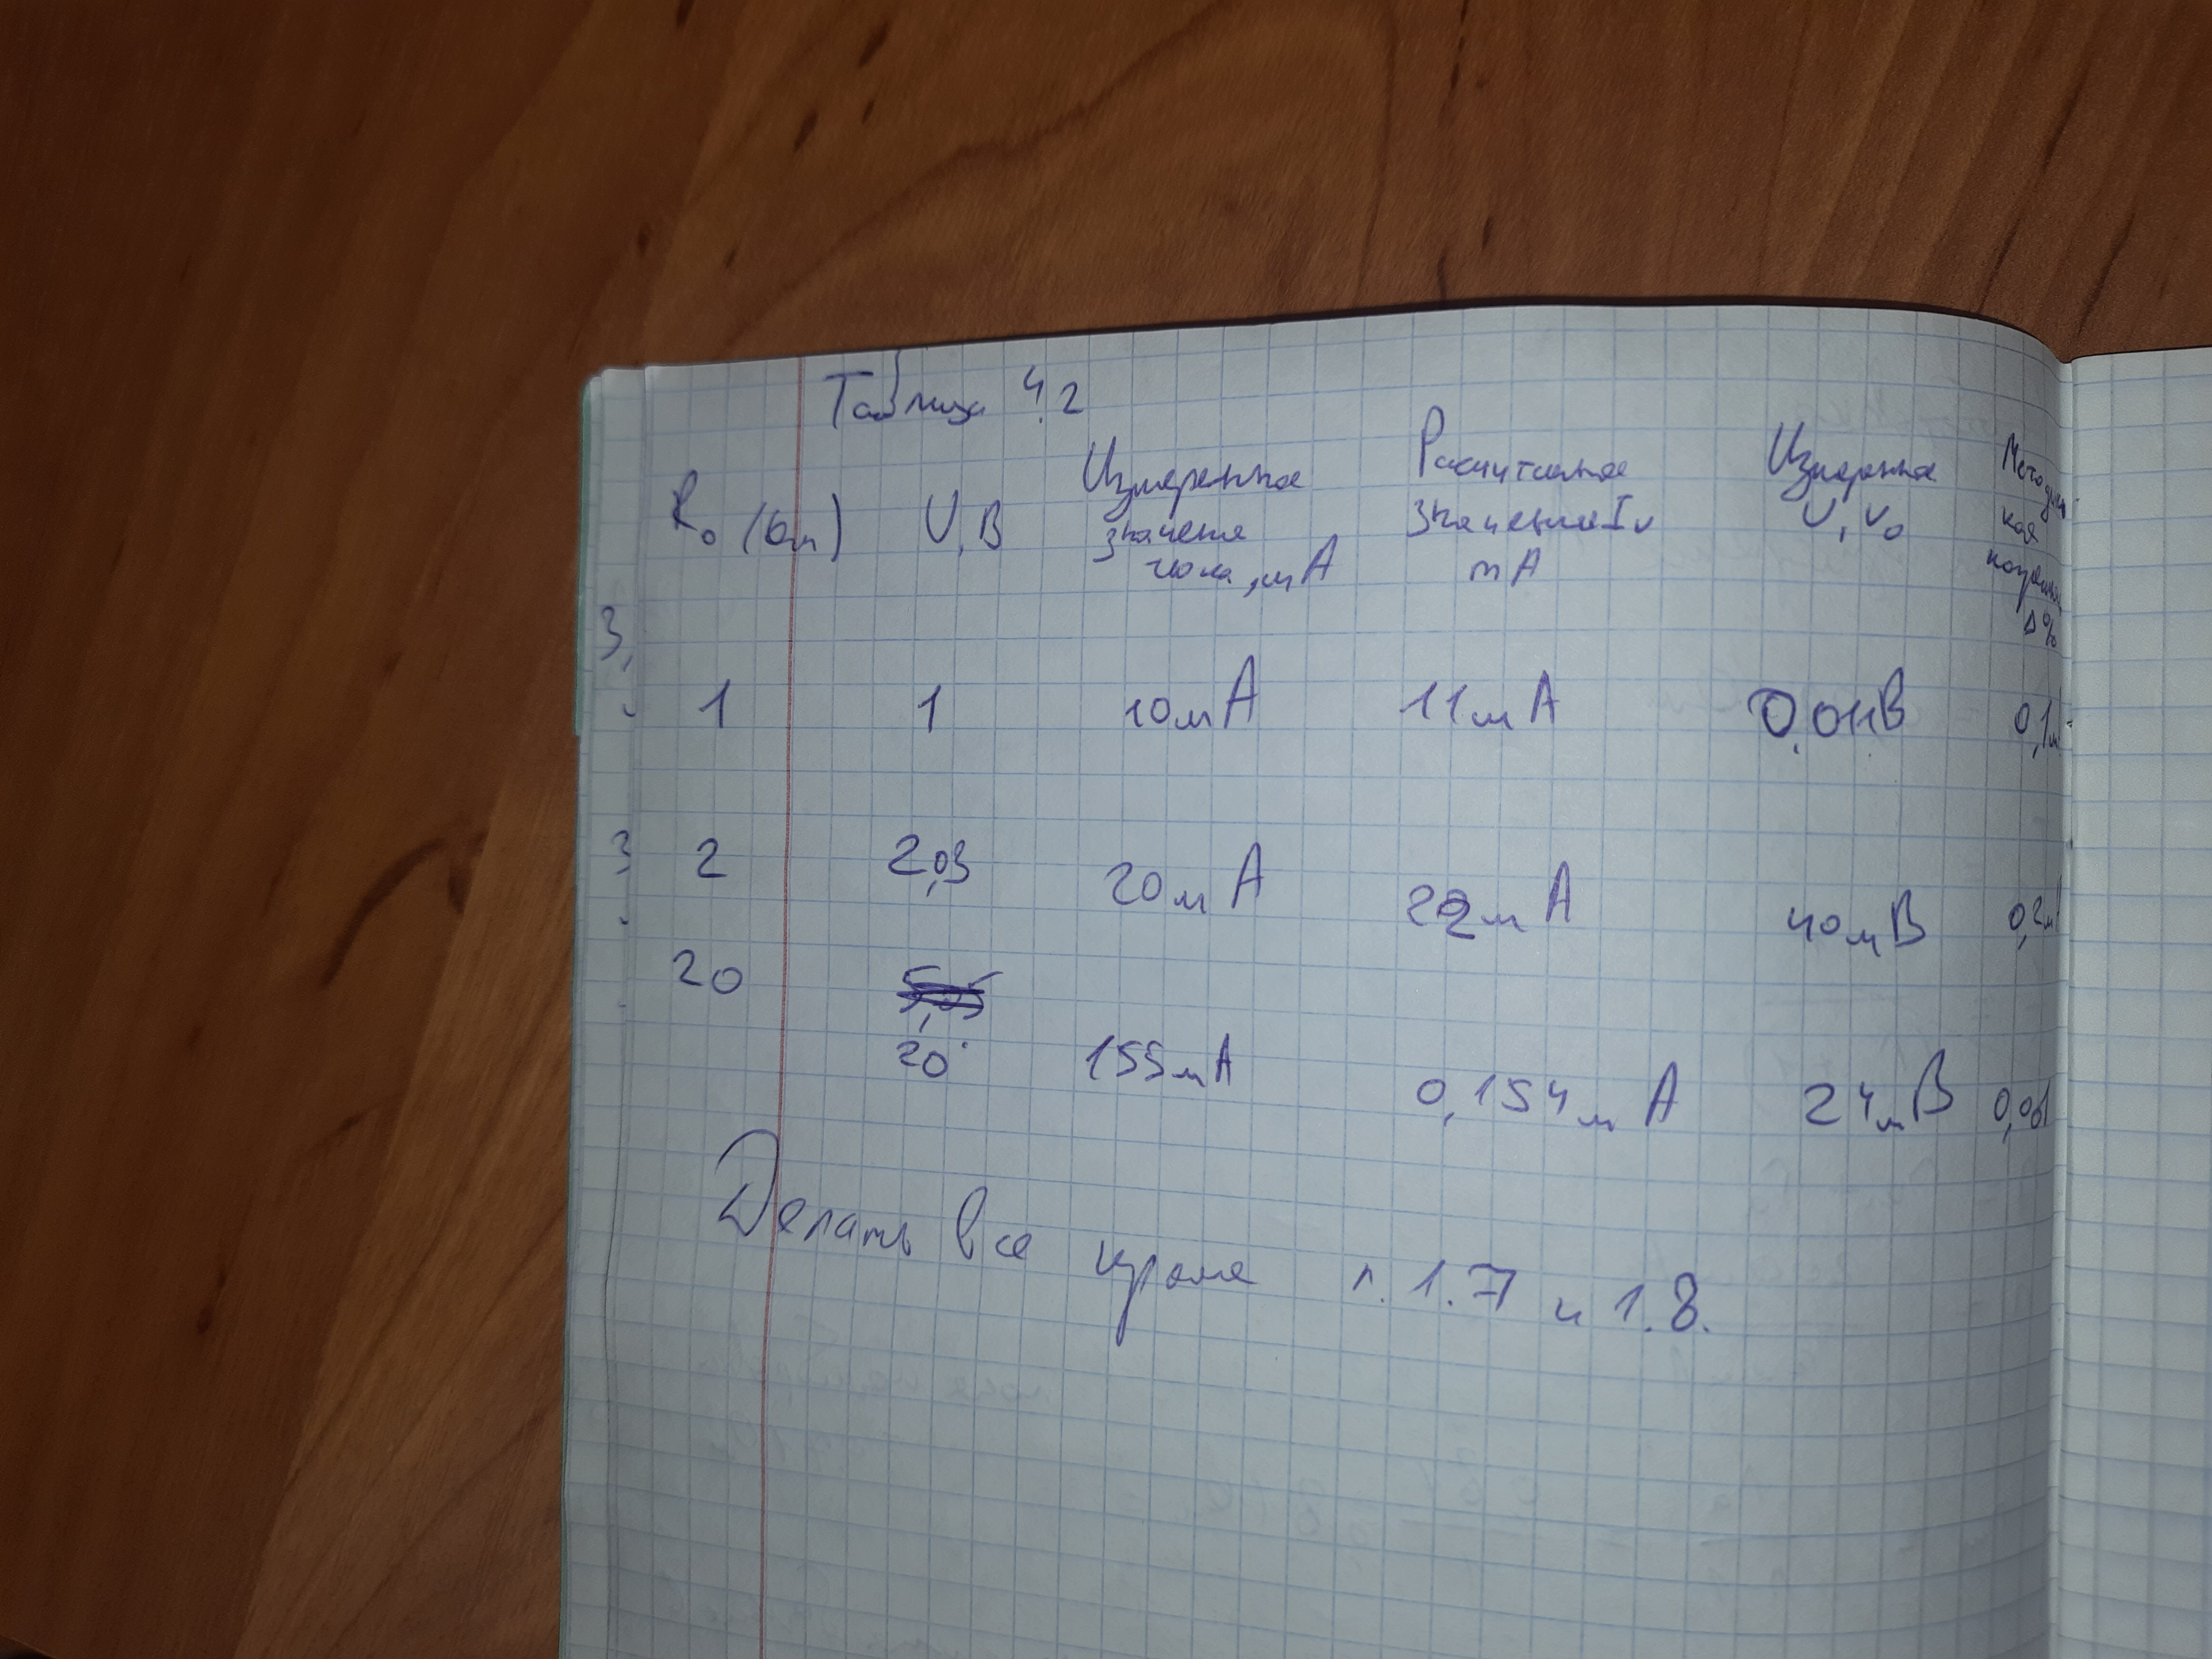 Таблица 4.2
R₀ (Ом) U, В Измеренное значение тока, мА Расчитанное значение Iv mA Измеренное U, v₀ Методическая Δ%
1 1 10мА 11мА 0,011В 0,1м
2 2,03 20мА 22мА 40мВ 0,2м
20
20 155мА 0,154мА 24мВ
Делать все кроме п. 1.7 и 1.8.